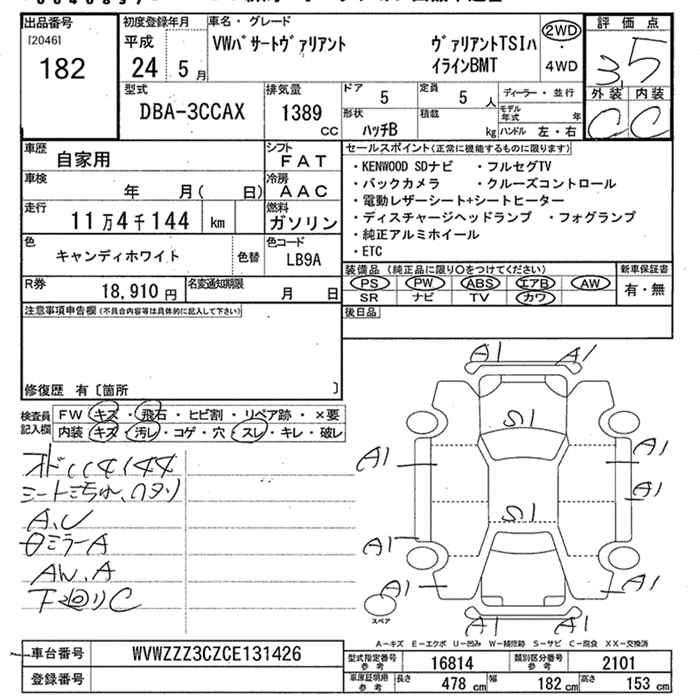 出品番号
[20461
182
初度登録年月
平成
24 5月
車名・グレード
VWパサートヴァリアント
ヴァリアントTSIハ
イラインBMT
2WD
・
4WD
評価点
3.5
外装 内装
C C
型式
DBA-3CCAX
排気量
1389
CC
ドア
5
定員
5 人
ディーラー・並行
形状
ハッチB
積載
kg
モデル年式 年
ハンドル 左・右
車歴
自家用
シフト
FAT
車検
年 月( 日)
冷房
AAC
走行
11万4千144 km
燃料
ガソリン
色
キャンディホワイト
色替
色コード
LB9A
R券
18,910円
名変通知期限
月 日
セールスポイント(正常に機能するものに限ります)
・KENWOOD SDナビ ・フルセグTV
・バックカメラ ・クルーズコントロール
・電動レザーシート+シートヒーター
・ディスチャージヘッドランプ ・フォグランプ
・純正アルミホイール
・ETC
装備品(純正品に限り○をつけてください)
PS PW ABS エアB AW
SR ナビ TV カワ
新車保証書
有・無
後日品
注意事項申告欄(不具合内容等は具体的に記入して下さい)
修復歴 有[箇所 ]
検査員
記入欄
FW キズ・飛石・ヒビ割・リペア跡・×要
内装 キズ・汚レ・コゲ・穴・スレ・キレ・破レ
オド114144
A.U
ミラーA
AW.A
下廻りC
A1 A1
S1
A1
A1
A1
S1
A1
A1 A1
スペア
A-キズ E-エクボ U-凹み W-補修跡 S-サビ C-腐食 XX-交換済
車台番号
WVWZZZ3CZCE131426
登録番号
型式指定番号
参考
16814
類別区分番号
参考
2101
車庫証明用
参考
長さ 478 cm 幅 182 cm 高さ 153 cm